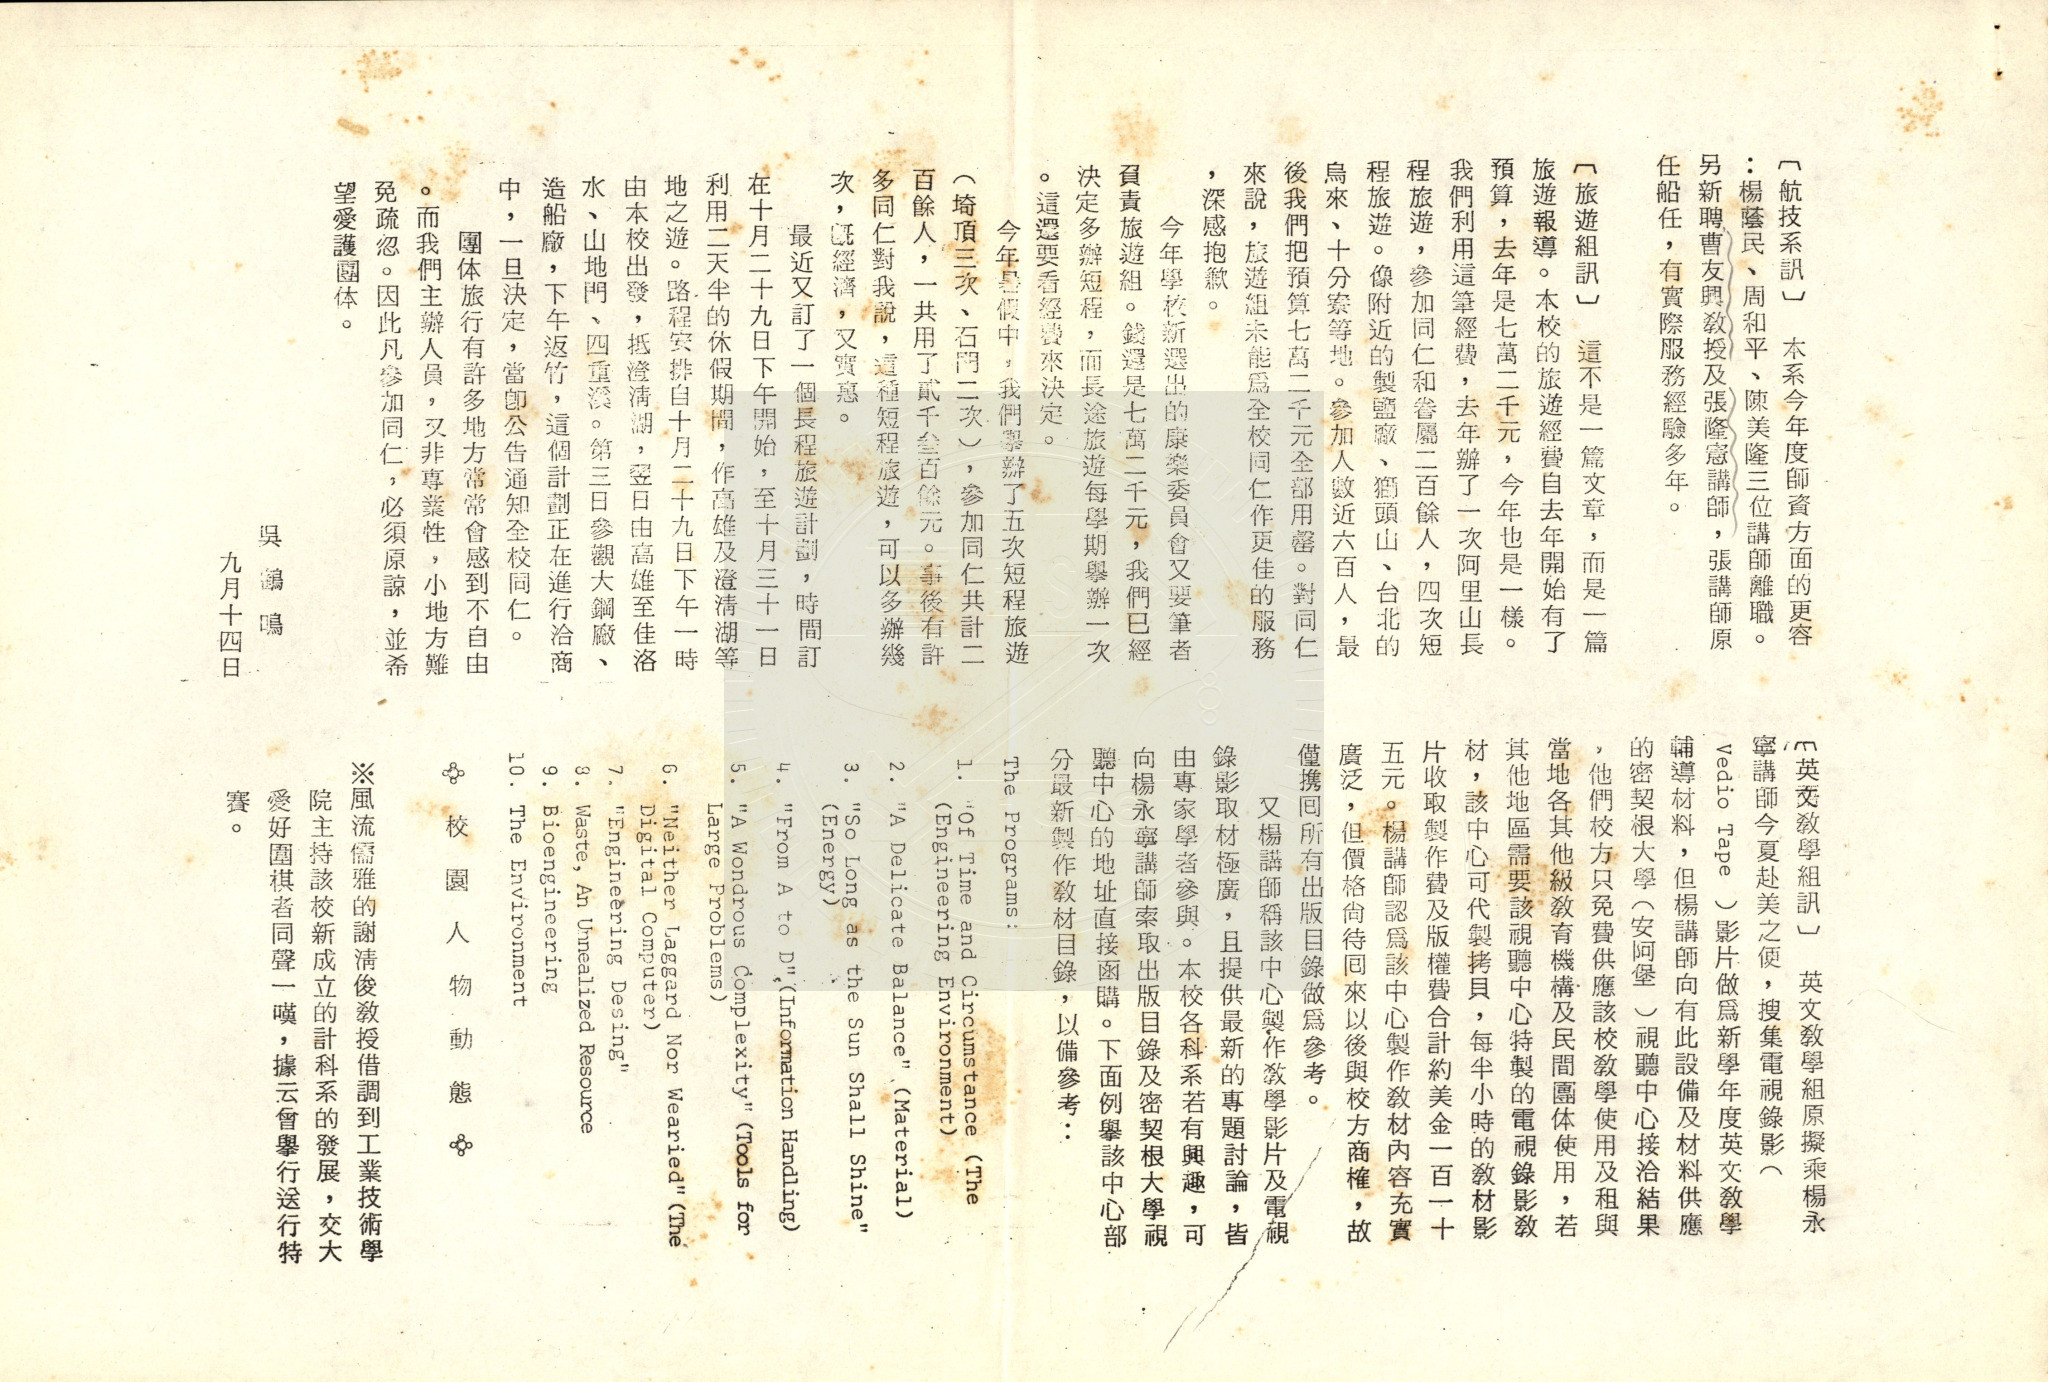 〔航技系訊〕　本系今年度師資方面的更容
：楊蔭民、周和平、陳美隆三位講師離職。
另新聘曹友興教授及張隆憲講師，張講師原
任船任，有實際服務經驗多年。
〔旅遊組訊〕　這不是一篇文章，而是一篇
旅遊報導。本校的旅遊經費自去年開始有了
預算，去年是七萬二千元，今年也是一樣。
我們利用這筆經費，去年辦了一次阿里山長
程旅遊，參加同仁和眷屬二百餘人，四次短
程旅遊。像附近的製鹽廠、獅頭山、台北的
烏來、十分寮等地。參加人數近六百人，最
後我們把預算七萬二千元全部用罄。對同仁
來說，旅遊組未能爲全校同仁作更佳的服務
，深感抱歉。
今年學校新選出的康樂委員會又要筆者
負責旅遊組。錢還是七萬二千元，我們已經
決定多辦短程，而長途旅遊每學期舉辦一次
。這還要看經費來決定。
今年暑假中，我們舉辦了五次短程旅遊
（埼頂三次、石門二次），參加同仁共計二
百餘人，一共用了貳千叁百餘元。事後有許
多同仁對我說，這種短程旅遊，可以多辦幾
次，旣經濟，又實惠。
最近又訂了一個長程旅遊計劃，時間訂
在十月二十九日下午開始，至十月三十一日
利用二天半的休假期間，作高雄及澄淸湖等
地之遊。路程安排自十月二十九日下午一時
由本校出發，抵澄淸湖，翌日由高雄至佳洛
水、山地門、四重溪。第三日參觀大鋼廠、
造船廠，下午返竹，這個計劃正在進行洽商
中，一旦決定，當卽公告通知全校同仁。
團体旅行有許多地方常常會感到不自由
。而我們主辦人員，又非專業性，小地方難
免疏忽。因此凡參加同仁，必須原諒，並希
望愛護團体。
吳鶴鳴
九月十四日
〔英文敎學組訊〕　英文敎學組原擬乘楊永
寧講師今夏赴美之便，搜集電視錄影（
Vedio Tape ）影片做爲新學年度英文敎學
輔導材料，但楊講師向有此設備及材料供應
的密契根大學（安阿堡 ）視聽中心接洽結果
，他們校方只免費供應該校敎學使用及租與
當地各其他級敎育機構及民間團体使用，若
其他地區需要該視聽中心特製的電視錄影敎
材，該中心可代製拷貝，每半小時的敎材影
片收取製作費及版權費合計約美金一百一十
五元。楊講師認爲該中心製作敎材內容充實
廣泛，但價格尙待囘來以後與校方商榷，故
僅携囘所有出版目錄做爲參考。
又楊講師稱該中心製作敎學影片及電視
錄影取材極廣，且提供最新的專題討論，皆
由專家學者參與。本校各科系若有興趣，可
向楊永寧講師索取出版目錄及密契根大學視
聽中心的地址直接函購。下面例擧該中心部
分最新製作敎材目錄，以備參考：
The Programs:
1. "Of Time and Circumstance (The
(Engineering Environment)
2. "A Delicate Balance" (Material)
3. "So Long as the Sun Shall Shine"
(Energy)
4. "From A to D", (Information Handling)
5. "A Wondrous Complexity" (Tools for
Large Problems)
6. "Neither Laggard Nor Wearied" (The
Digital Computer)
7. "Engineering Desing"
8. Waste, An Unnealized Resource
9. Bioengineering
10. The Environment
校園人物動態
※風流儒雅的謝淸俊敎授借調到工業技術學
院主持該校新成立的計科系的發展，交大
愛好圍棋者同聲一嘆，據云曾擧行送行特
賽。